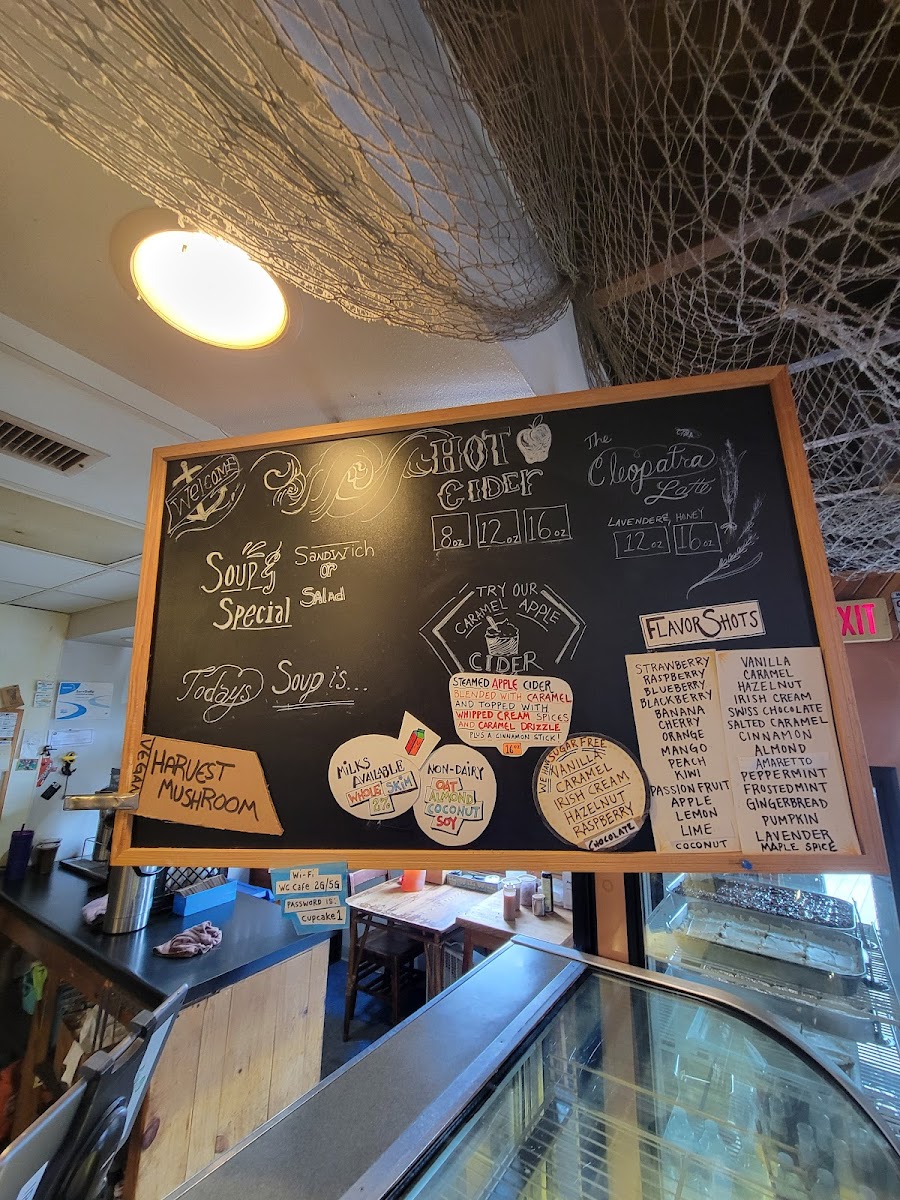 WELCOME
Soup &
Special
SANDWICH
OR
SALAD
Today's Soup is...
VEGAN
HARVEST
MUSHROOM
HOT
CIDER
8oz 12oz 16oz
The
Cleopatra
Latte
LAVENDER & HONEY
12oz 16oz
TRY OUR
CARAMEL APPLE
CIDER
STEAMED APPLE CIDER
BLENDED WITH CARAMEL
AND TOPPED WITH
WHIPPED CREAM SPICES
AND CARAMEL DRIZZLE
PLUS A CINNAMON STICK!
16oz
MILKS
AVAILABLE
WHOLE SKIM
2%
NON-DAIRY
OAT
ALMOND
COCONUT
SOY
WE HAVE SUGAR FREE
VANILLA
CARAMEL
IRISH CREAM
HAZELNUT
RASPBERRY
CHOCOLATE
FLAVOR SHOTS
STRAWBERRY
RASPBERRY
BLUEBERRY
BLACKBERRY
BANANA
CHERRY
ORANGE
MANGO
PEACH
KIWI
PASSIONFRUIT
APPLE
LEMON
LIME
COCONUT
VANILLA
CARAMEL
HAZELNUT
IRISH CREAM
SWISS CHOCOLATE
SALTED CARAMEL
CINNAMON
ALMOND
AMARETTO
PEPPERMINT
FROSTED MINT
GINGERBREAD
PUMPKIN
LAVENDER
MAPLE SPICE
EXIT
Wi-Fi
WC Cafe 2G/5G
PASSWORD IS:
cupcake1